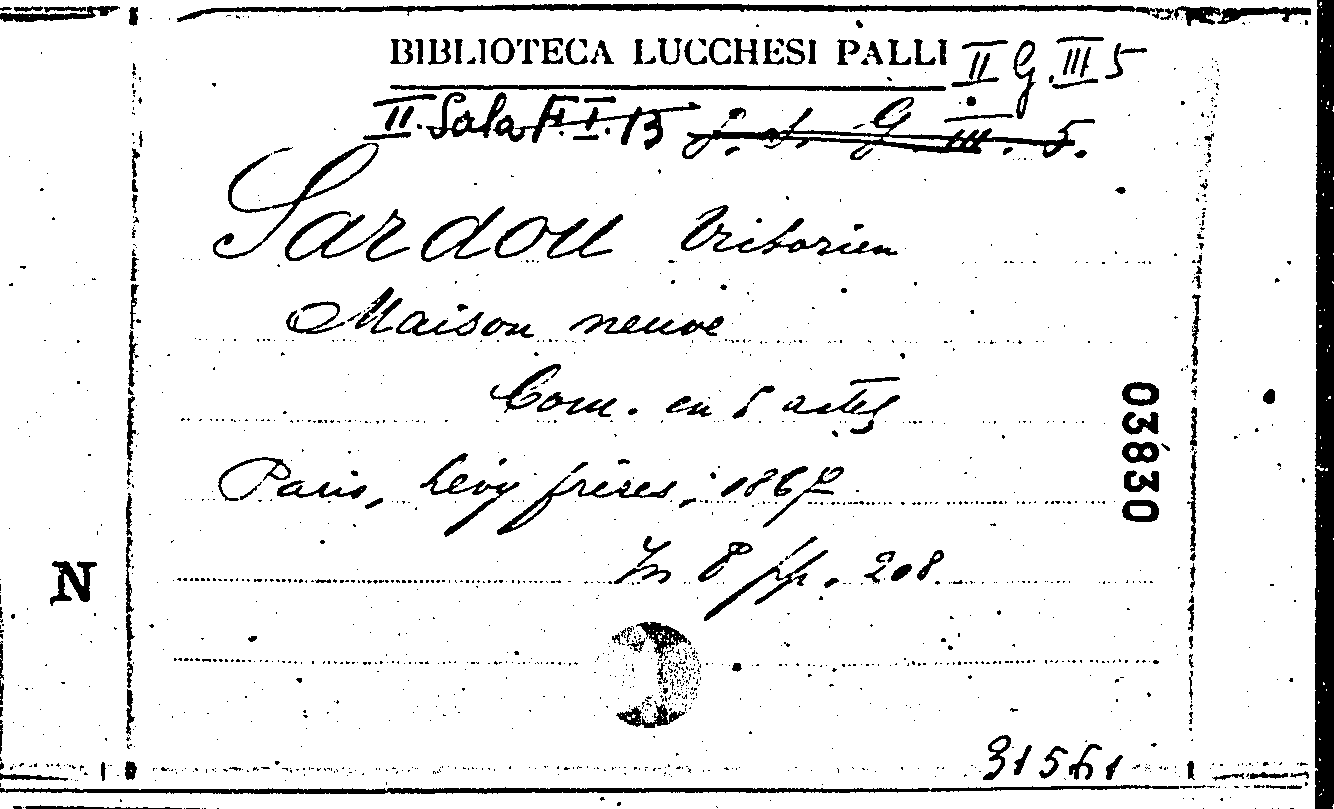 BIBLIOTECA LUCCHESI PALLI II G. III 5
II. Sala G. III. 5.
Sardou Vittorien
Maison neuve
Com. en 5 actes
Paris, Lévy frères, 1867
In 8 pp. 208
03830
N